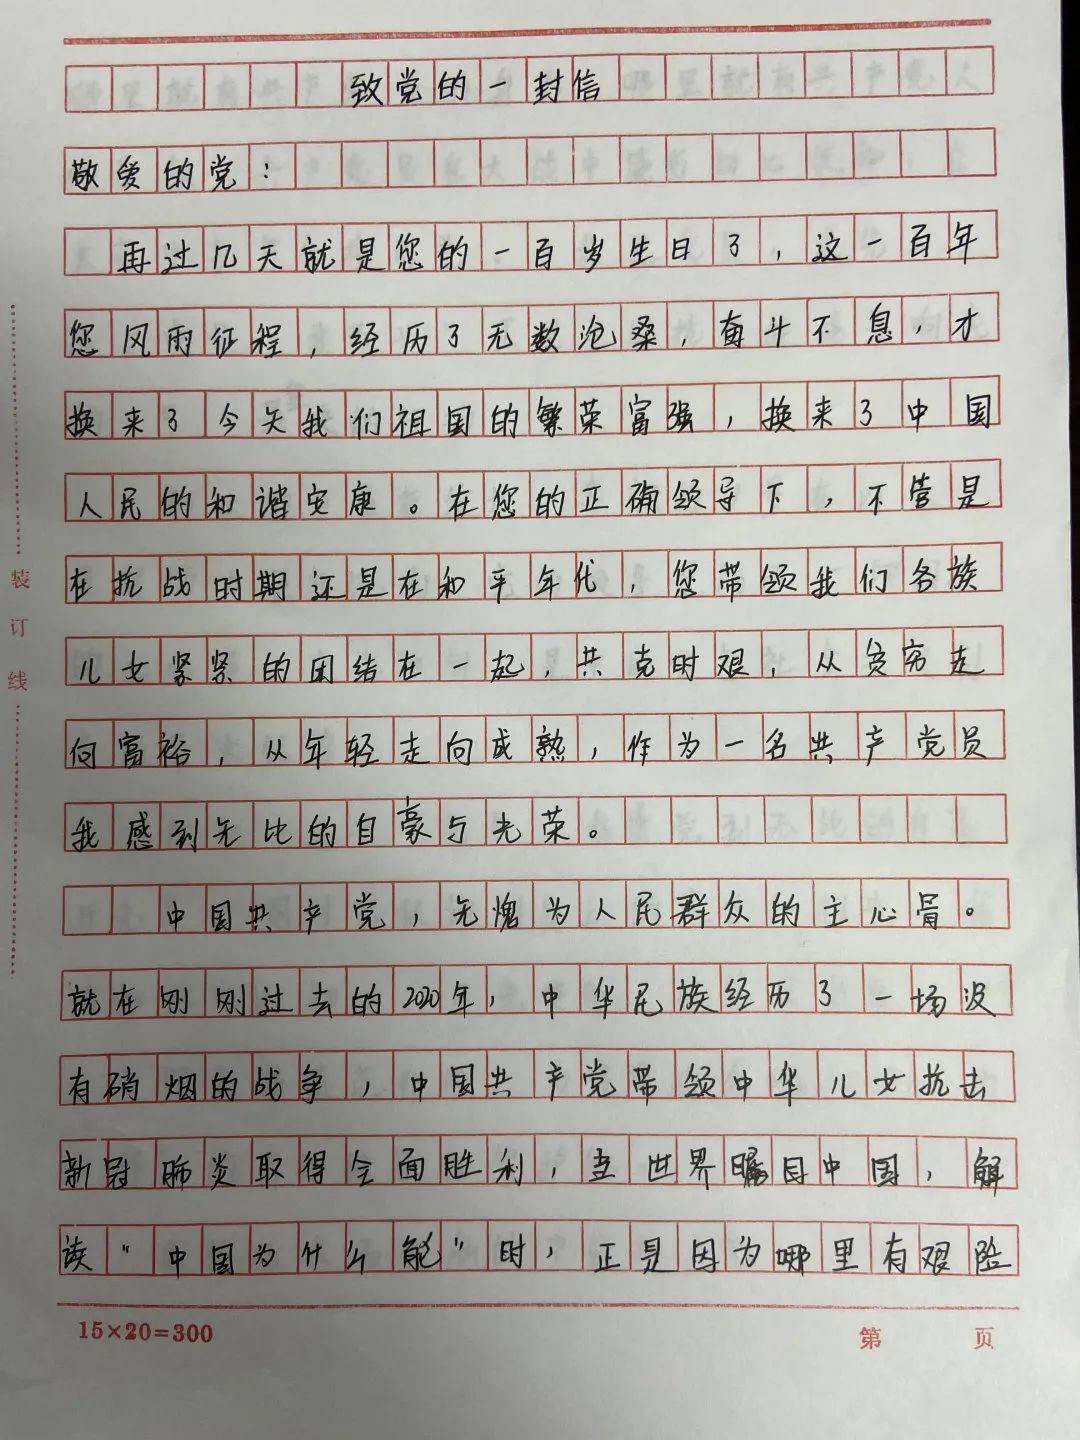 致党的一封信
敬爱的党：
再过几天就是您的一百岁生日了，这一百年
您风雨征程，经历了无数沧桑，奋斗不息，才
换来了今天我们祖国的繁荣富强，换来了中国
人民的和谐安康。在您的正确领导下，不管是
在抗战时期还是在和平年代，您带领我们各族
儿女紧紧的团结在一起，共克时艰，从贫穷走
向富裕，从年轻走向成熟，作为一名共产党员
我感到无比的自豪与光荣。
中国共产党，无愧为人民群众的主心骨。
就在刚刚过去的2020年，中华民族经历了一场没
有硝烟的战争，中国共产党带领中华儿女抗击
新冠肺炎取得全面胜利，当世界瞩目中国，解
读“中国为什么能”时，正是因为哪里有艰险
装订线
15×20=300
第 页